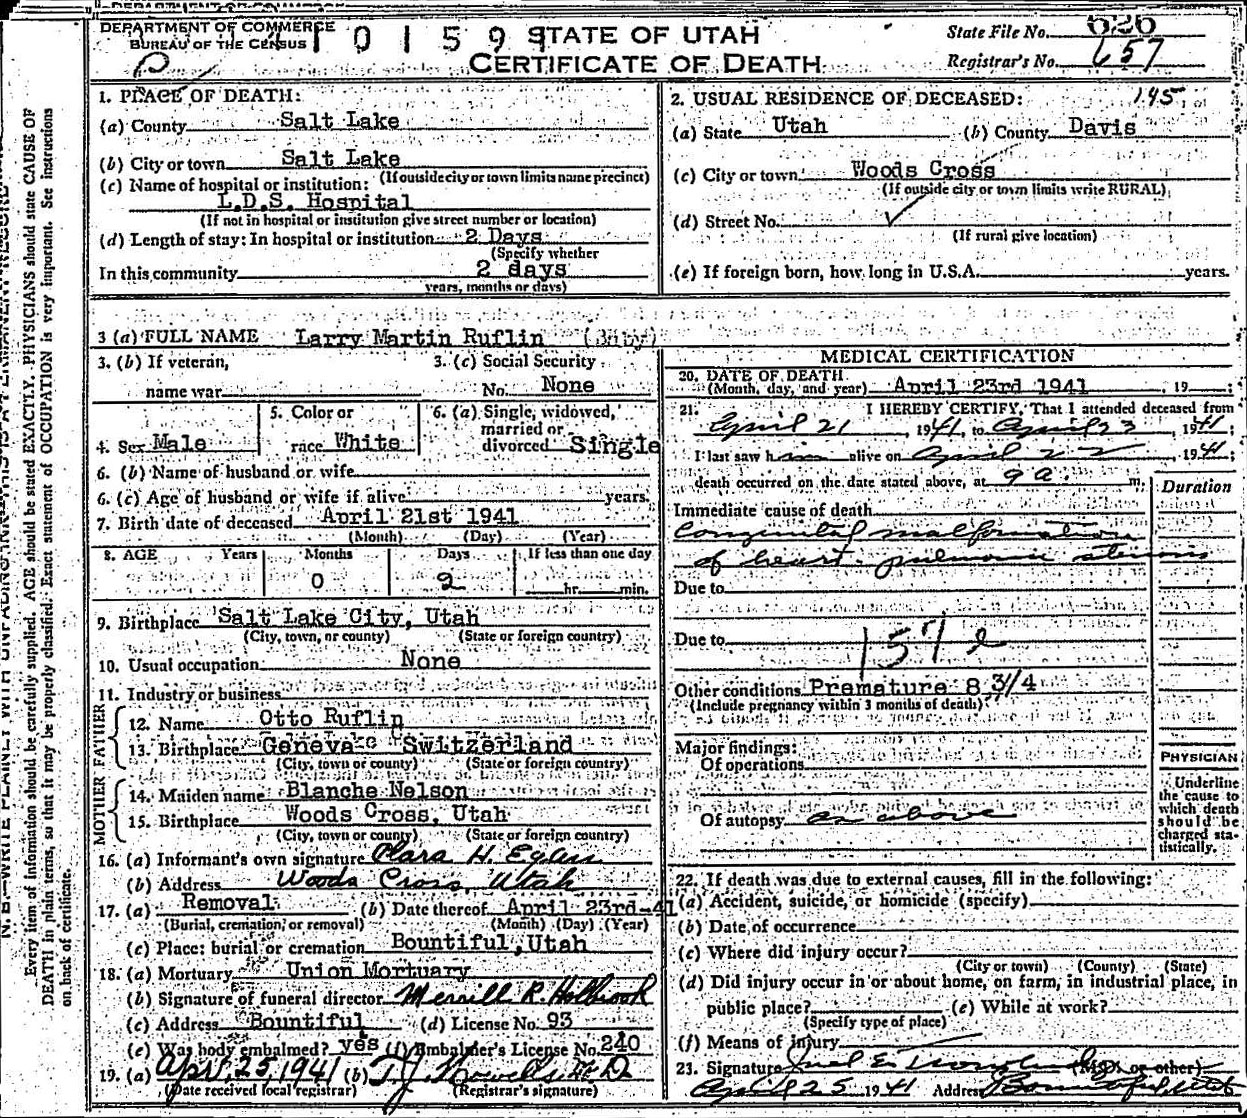 DEPARTMENT OF COMMERCE
BUREAU OF THE CENSUS
1 0 1 5 9 9
STATE OF UTAH
CERTIFICATE OF DEATH
State File No. 626
Registrar's No. 657
1. PLACE OF DEATH:
(a) County Salt Lake
(b) City or town Salt Lake
(If outside city or town limits name precinct)
(c) Name of hospital or institution:
L.D.S. Hospital
(If not in hospital or institution give street number or location)
(d) Length of stay: In hospital or institution 2 Days
(Specify whether
In this community 2 days
years, months or days)
2. USUAL RESIDENCE OF DECEASED: 145
(a) State Utah (b) County Davis
(c) City or town Woods Cross
(If outside city or town limits write RURAL)
(d) Street No.
(If rural give location)
(e) If foreign born, how long in U.S.A. years.
3 (a) FULL NAME Larry Martin Ruflin (Baby)
3. (b) If veteran,
name war
3. (c) Social Security
No. None
4. Sex Male
5. Color or
race White
6. (a) Single, widowed,
married or
divorced Single
6. (b) Name of husband or wife
6. (c) Age of husband or wife if alive years.
7. Birth date of deceased April 21st 1941
(Month) (Day) (Year)
8. AGE Years Months Days If less than one day
0 2 hr. min.
9. Birthplace Salt Lake City, Utah
(City, town, or county) (State or foreign country)
10. Usual occupation None
11. Industry or business
FATHER
12. Name Otto Ruflin
13. Birthplace Geneva Switzerland
(City, town or county) (State or foreign country)
MOTHER
14. Maiden name Blanche Nelson
15. Birthplace Woods Cross, Utah
(City, town or county) (State or foreign country)
16. (a) Informant's own signature Clara H.
(b) Address Woods Cross, Utah
17. (a) Removal (b) Date thereof April 23rd-41
(Burial, cremation, or removal) (Month) (Day) (Year)
(c) Place: burial or cremation Bountiful, Utah
18. (a) Mortuary Union Mortuary
(b) Signature of funeral director Merrill R. Holbrook
(c) Address Bountiful (d) License No. 93
(e) Was body embalmed? yes (f) Embalmer's License No. 240
19. (a) Apr. 25 1941 (b) T.J. Howells M D
(Date received local registrar) (Registrar's signature)
MEDICAL CERTIFICATION
20. DATE OF DEATH
(Month, day, and year) April 23rd 1941, 19 ;
21. I HEREBY CERTIFY, That I attended deceased from
April 21, 1941, to April 23, 1941;
I last saw him alive on April 22, 1941;
death occurred on the date stated above, at 9 a. m.
Duration
Immediate cause of death
Congenital malformation
of heart - pulmonic stenosis
Due to
Due to
157 e
Other conditions Premature 8 3/4
(Include pregnancy within 3 months of death)
Major findings:
Of operations
Of autopsy as above
PHYSICIAN
Underline
the cause to
which death
should be
charged sta-
tistically.
22. If death was due to external causes, fill in the following:
(a) Accident, suicide, or homicide (specify)
(b) Date of occurrence
(c) Where did injury occur?
(City or town) (County) (State)
(d) Did injury occur in or about home, on farm, in industrial place, in
public place? (e) While at work?
(Specify type of place)
(f) Means of injury
23. Signature (M.D. or other)
April 25 1941 Address Bountiful Utah
Every item of information should be carefully supplied. AGE should be stated EXACTLY. PHYSICIANS should state CAUSE OF
DEATH in plain terms, so that it may be properly classified. Exact statement of OCCUPATION is very important. See instructions
on back of certificate.